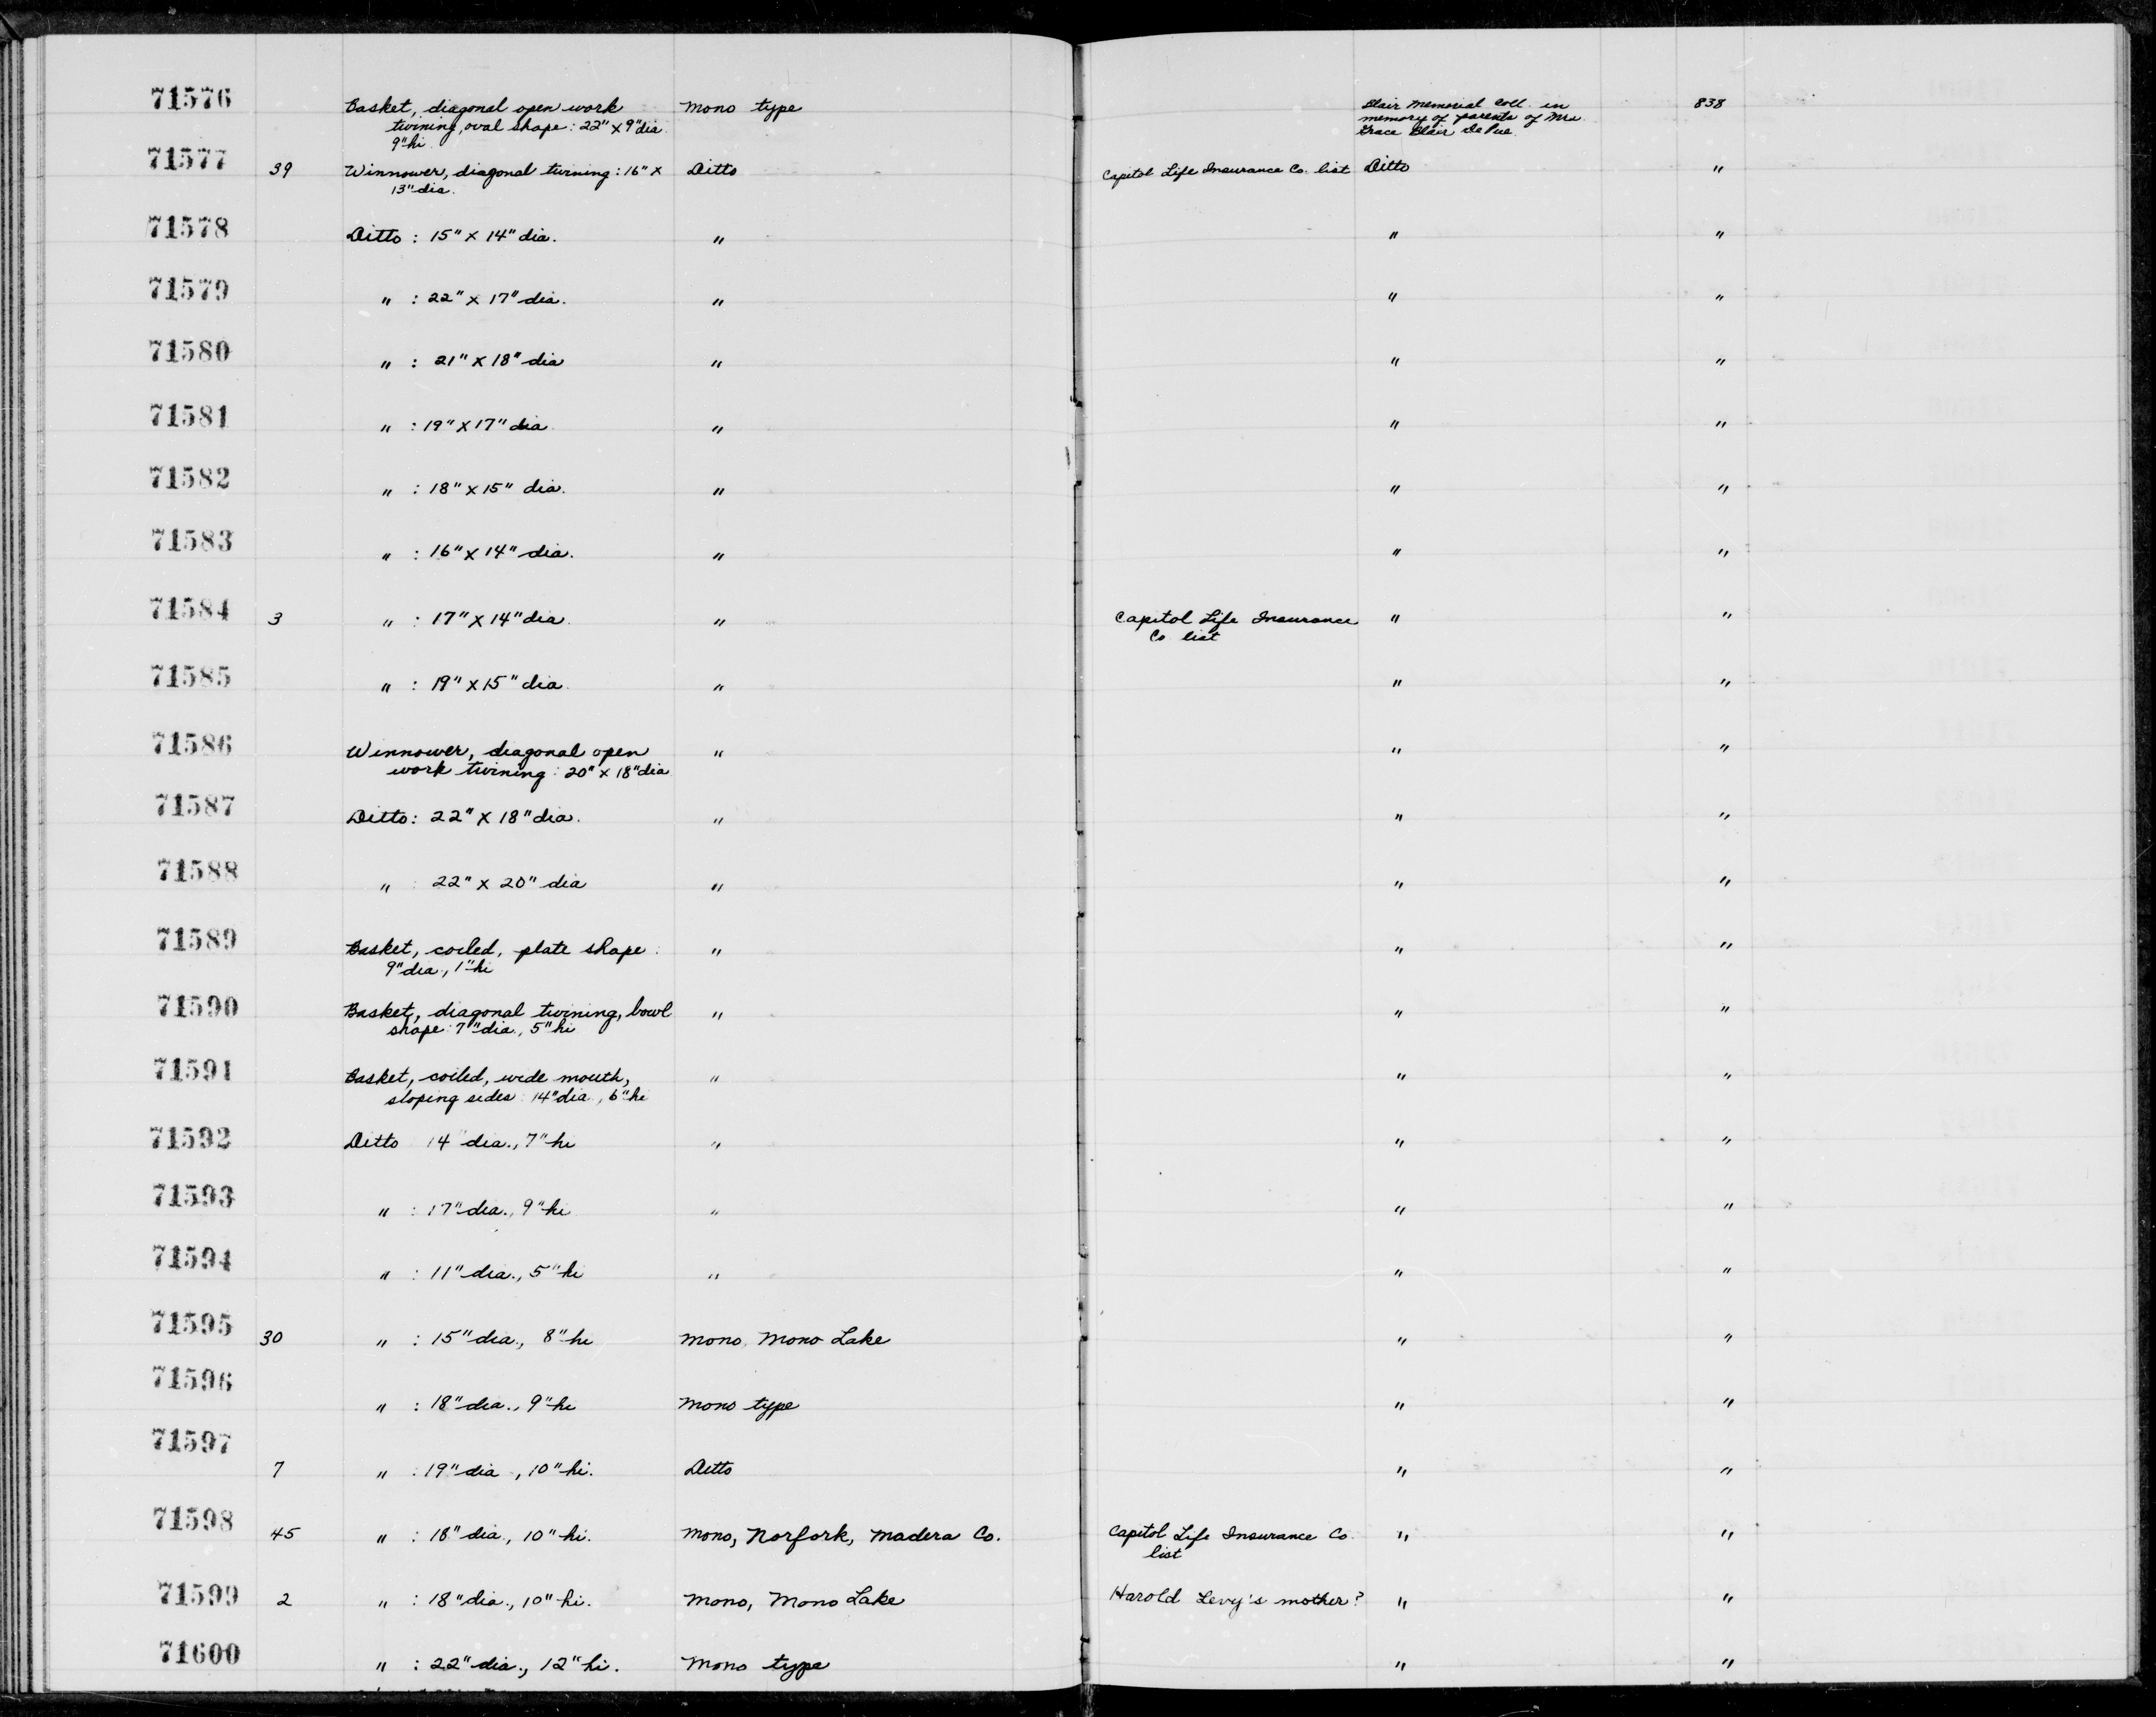 71576 Basket, diagonal open work Mono type Blair Memorial Coll. in 838
twining, oval shape: 22" x 9" dia memory of parents of Mrs.
9" hi. Grace Blair DePue.
71577 39 Winnower, diagonal twining: 16" x Ditto Capitol Life Insurance Co. list Ditto "
13" dia.
71578 Ditto : 15" x 14" dia. " " "
71579 " : 22" x 17" dia. " " "
71580 " : 21" x 18" dia " " "
71581 " : 19" x 17" dia " " "
71582 " : 18" x 15" dia. " " "
71583 " : 16" x 14" dia. " " "
71584 3 " : 17" x 14" dia. " Capitol Life Insurance " "
Co list
71585 " : 19" x 15" dia. " " "
71586 Winnower, diagonal open " " "
work twining: 20" x 18" dia
71587 Ditto: 22" x 18" dia. " " "
71588 " 22" x 20" dia " " "
71589 Basket, coiled, plate shape: " " "
9" dia., 1" hi
71590 Basket, diagonal twining, bowl " " "
shape: 7" dia., 5" hi
71591 Basket, coiled, wide mouth, " " "
sloping sides: 14" dia., 6" hi
71592 Ditto 14" dia., 7" hi " " "
71593 " : 17" dia., 9" hi " " "
71594 " : 11" dia., 5" hi " " "
71595 30 " : 15" dia., 8" hi Mono, Mono Lake " "
71596 " : 18" dia., 9" hi Mono type " "
71597 7 " : 19" dia., 10" hi. Ditto " "
71598 45 " : 18" dia., 10" hi. Mono, Norfork, Madera Co. Capitol Life Insurance Co. " "
list
71599 2 " : 18" dia., 10" hi. Mono, Mono Lake Harold Levy's mother? " "
71600 " : 22" dia., 12" hi. Mono type " "